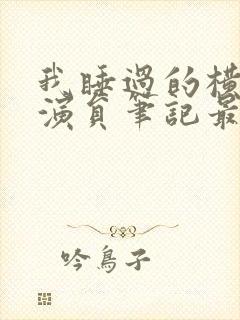 我睡過的橫
演員筆記最
吟鳥子